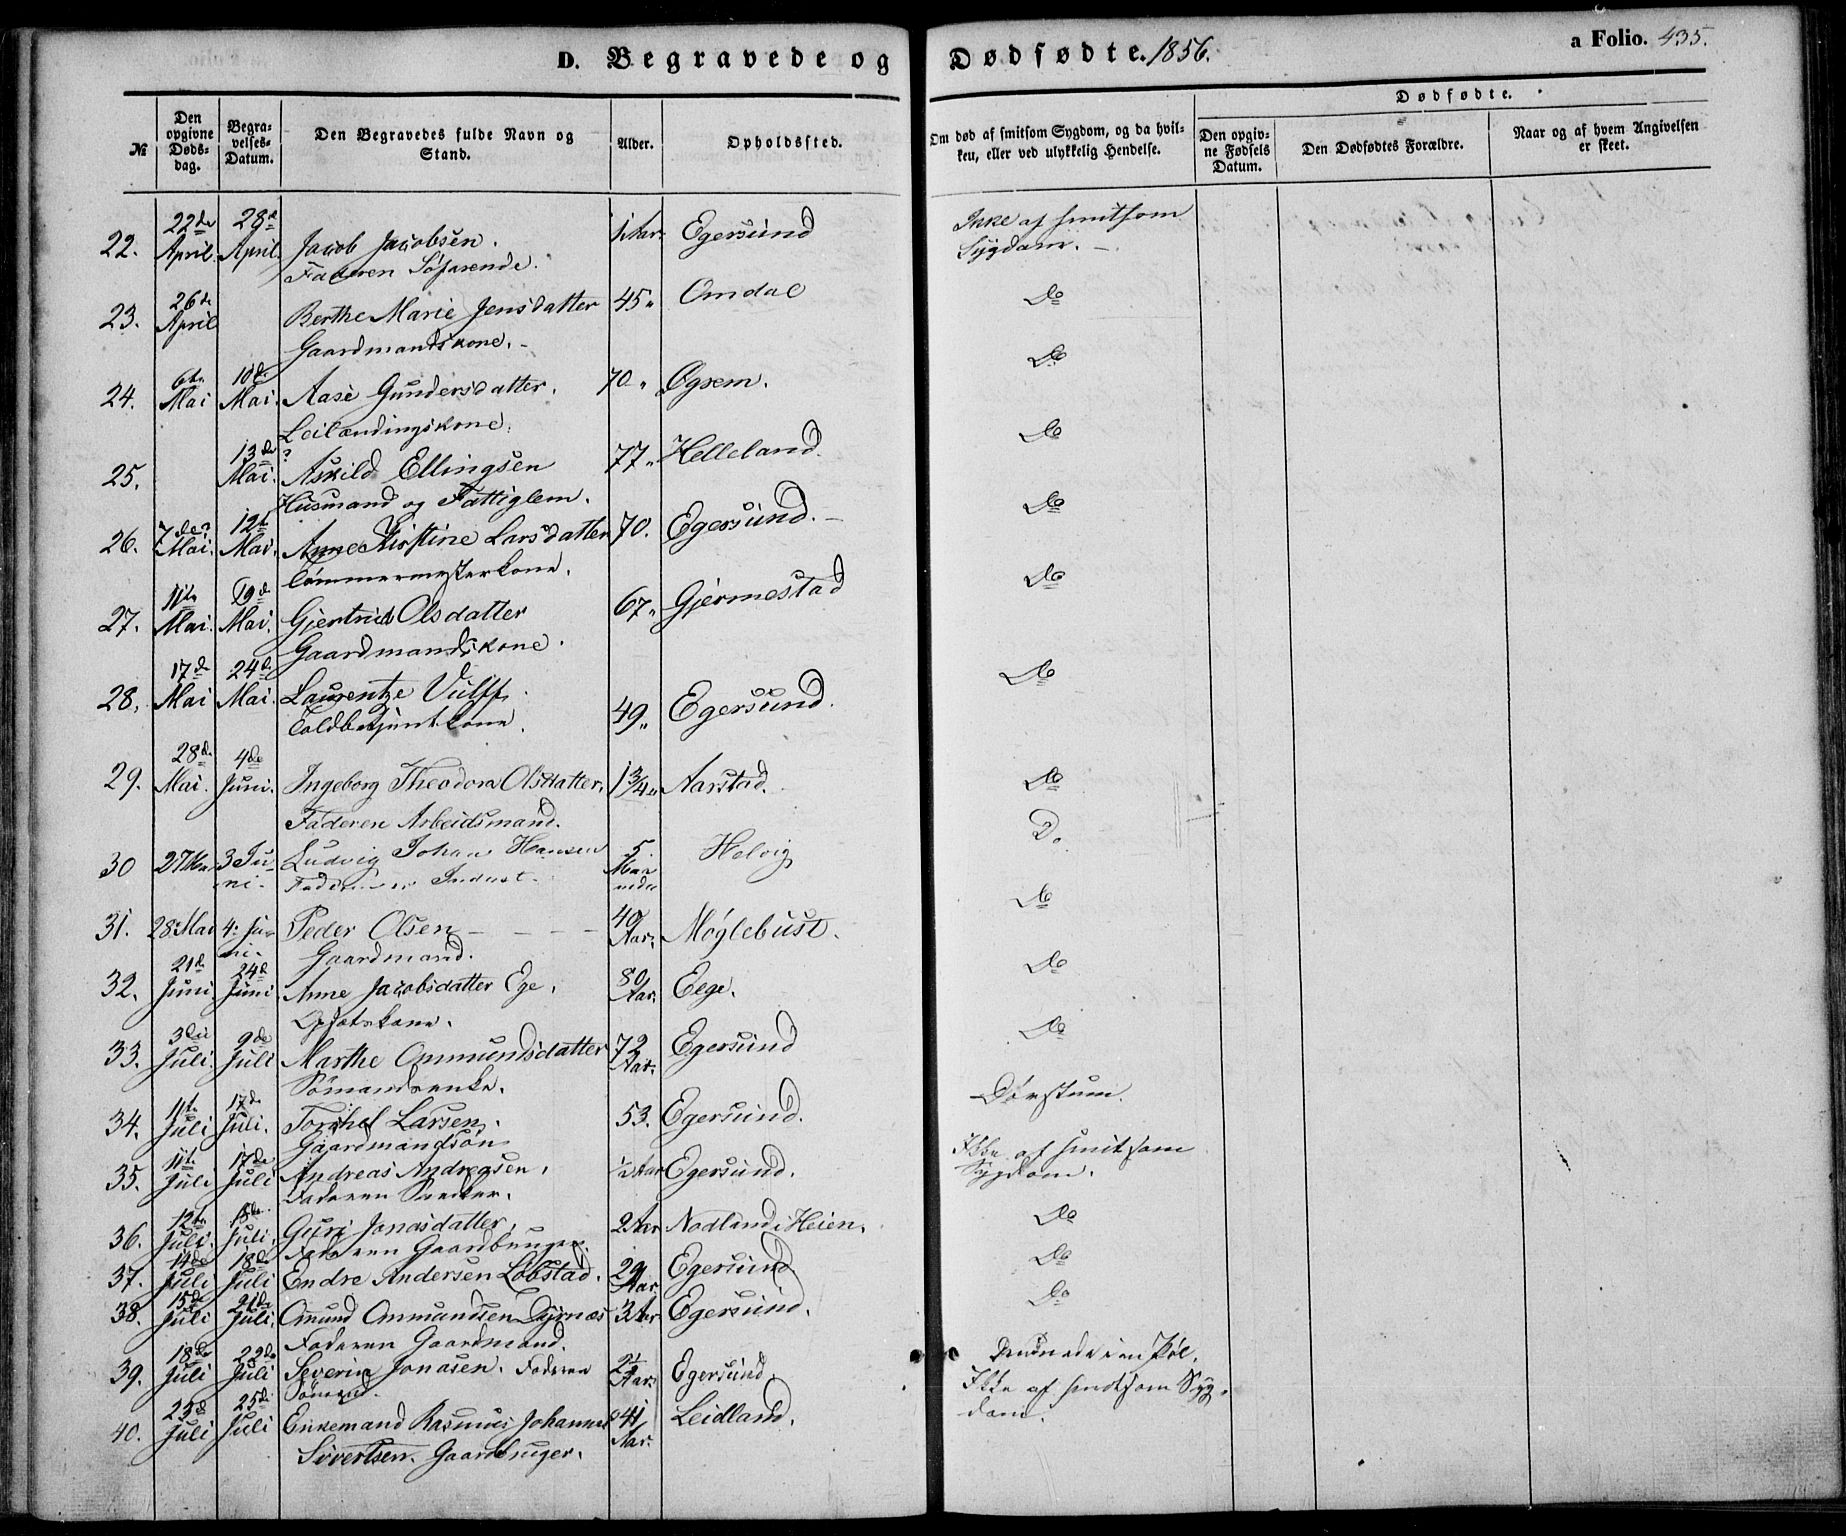 D. Begravede og Dødfødte. 1856.
a Folio. 435.
№
Den opgivne Døds-dag.
Begra-velses-Datum.
Den Begravedes fulde Navn og Stand.
Alder.
Opholdssted.
Om død af smitsom Sygdom, og da hvil-ken, eller ved ulykkelig Hendelse.
Dødfødte.
Den opgiv-ne Fødsels Datum.
Den Dødfødtes Forældre.
Naar og af hvem Angivelsen er skeet.
22. 22de April 28d April Jacob Jacobsen. 1 Aar. Egersund Ikke af smitsom
Faderen Söfarende. Sygdom. -
23. 26de April Berthe Marie Jensdatter 45 " Omdal Do
Gaardmandskone. -
24. 6te Mai 10de Mai. Aase Gundersdatter. 70 " Øgrem. Do
Leilændingskone.
25. 13de Mai. ? Askild Ellingsen 77 " Helleland. Do
Husmand og Fattiglem.
26. 7de? Mai. 12te Mai. Anne Kirstine Larsdatter 70. Egersund. - Do
Tömmermesterkone.
27. 11te Mai. 19de Mai. Gjertrud Olsdatter 67 " Gjermestad Do
Gaardmandskone.
28. 17de Mai 24de Mai. Laurentze Vulff. 49 " Egersund. Do
Toldbetjentkone.
29. 28de Mai. 4de Juni. Ingeborg Theodora Olsdatter. 1 3/4 " Aarstad. Do
Faderen Arbeidsmand.
30 27 Mai 3 Ju-ni. Ludvig Johan Hansen 5. Maaneder Helvig Do
Faderen Indust.
31. 28 Mai 4. Ju-ni. Peder Olsen - - - - 40 Aar. Møglebust. Do
Gaardmand.
32. 21de Juni 24de Juni Anne Jacobsdatter Ege. 80 Aar. Eege. Do
33. 3die Juli. 9de Juli Marthe Ommundsdatter 72 Aar. Egersund Do
Sömandsenke.
34. 11te Juli 17de Juli. Torkel Larsen. 53. Egersund.
Gaardmandsön
35. 11te Juli 17de Juli Andreas Andreasen. 1/2 Aar Egersund. Ikke af smitsom
Faderen Snedker. Sygdom.
36. 12te Juli. 18de Juli. Guri Jonasdatter, 2 Aar Nodland i Heien. Do
Faderen Gaardbruger.
37. 14de Juli 18de Juli Endre Andersen Löbstad. 29 Aar Egersund Do
38. 15de Juli 21de Juli. Omund Ommundsen Dyrnæs 3 Aar Egersund. Do
Faderen Gaardmand.
39. 18de Juli 22de Juli Severin Jonasen. Faderen 2 1/2 Aar. Egersund Druknede i en Pöl.
Sömand.
40. 23de Juli 25de Juli Enkemand Rasmus Johannes 41 Aar. Leidland. Ikke af smitsom Syg-
Sivertsen. Gaardbruger. dom.